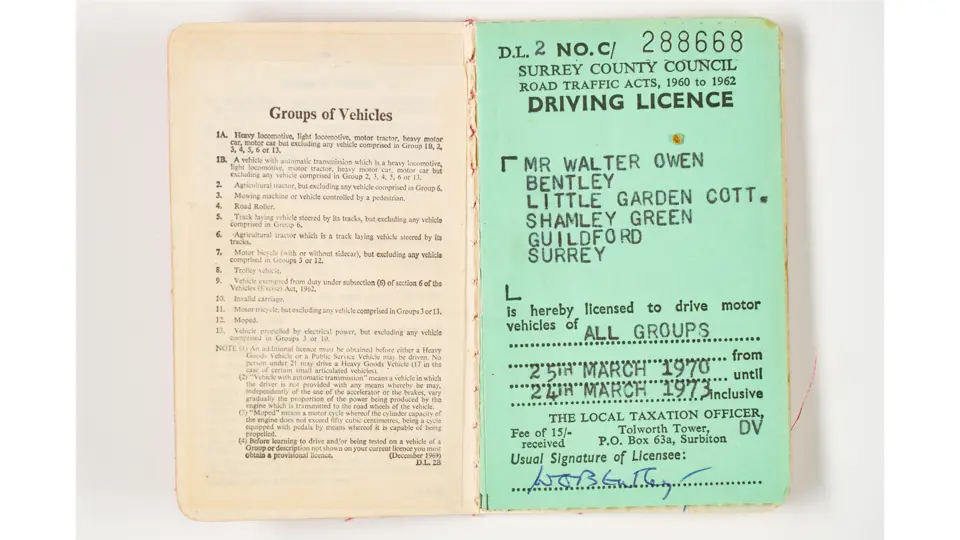 Groups of Vehicles
1A. Heavy locomotive, light locomotive, motor tractor, heavy motor
car, motor car but excluding any vehicle comprised in Group 1B, 2,
3, 4, 5, 6 or 13.
1B. A vehicle with automatic transmission which is a heavy locomotive,
light locomotive, motor tractor, heavy motor car, motor car but
excluding any vehicle comprised in Group 2, 3, 4, 5, 6 or 13.
2. Agricultural tractor, but excluding any vehicle comprised in Group 6.
3. Mowing machine or vehicle controlled by a pedestrian.
4. Road Roller.
5. Track laying vehicle steered by its tracks, but excluding any vehicle
comprised in Group 6.
6. Agricultural tractor which is a track laying vehicle steered by its
tracks.
7. Motor bicycle (with or without sidecar), but excluding any vehicle
comprised in Groups 3 or 12.
8. Trolley vehicle.
9. Vehicle exempted from duty under subsection (6) of section 6 of the
Vehicles (Excise) Act, 1962.
10. Invalid carriage.
11. Motor tricycle, but excluding any vehicle comprised in Groups 3 or 13.
12. Moped.
13. Vehicle propelled by electrical power, but excluding any vehicle
comprised in Groups 3 or 10.
NOTE (1) An additional licence must be obtained before either a Heavy
Goods Vehicle or a Public Service Vehicle may be driven. No
person under 21 may drive a Heavy Goods Vehicle (17 in the
case of certain small articulated vehicles).
(2) "Vehicle with automatic transmission" means a vehicle in which
the driver is not provided with any means whereby he may,
independently of the use of the accelerator or the brakes, vary
gradually the proportion of the power being produced by the
engine which is transmitted to the road wheels of the vehicle.
(3) "Moped" means a motor cycle whereof the cylinder capacity of
the engine does not exceed fifty cubic centimetres, being a cycle
equipped with pedals by means whereof it is capable of being
propelled.
(4) Before learning to drive and/or being tested on a vehicle of a
Group or description not shown on your current licence you must
obtain a provisional licence. (December 1969)
D.L. 2B
D.L. 2 NO. C/ 288668
SURREY COUNTY COUNCIL
ROAD TRAFFIC ACTS, 1960 to 1962
DRIVING LICENCE
MR WALTER OWEN
BENTLEY
LITTLE GARDEN COTT.
SHAMLEY GREEN
GUILDFORD
SURREY
is hereby licensed to drive motor
vehicles of ALL GROUPS
from
25TH MARCH 1970 until
24TH MARCH 1973 inclusive
THE LOCAL TAXATION OFFICER,
Fee of 15/- Tolworth Tower, DV
received P.O. Box 63a, Surbiton
Usual Signature of Licensee:
WO Bentley